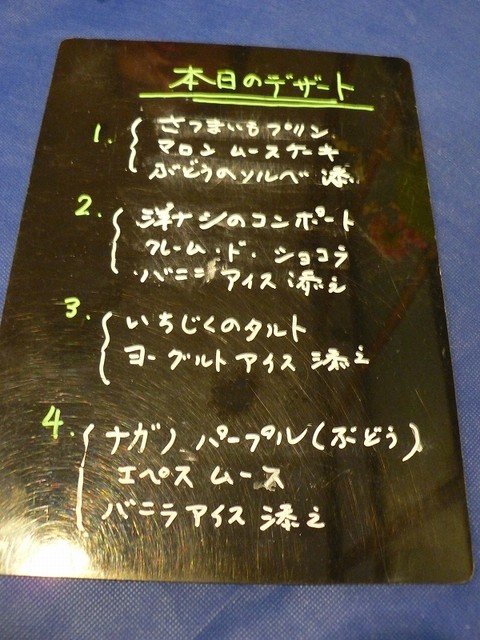 本日のデザート
1. さつまいもプリン
マロン ムースケーキ
ぶどうのソルベ 添え
2. 洋ナシのコンポート
クレーム・ド・ショコラ
バニラアイス 添え
3. いちじくのタルト
ヨーグルトアイス 添え
4. ナガノ パープル(ぶどう)
エペス ムース
バニラアイス 添え